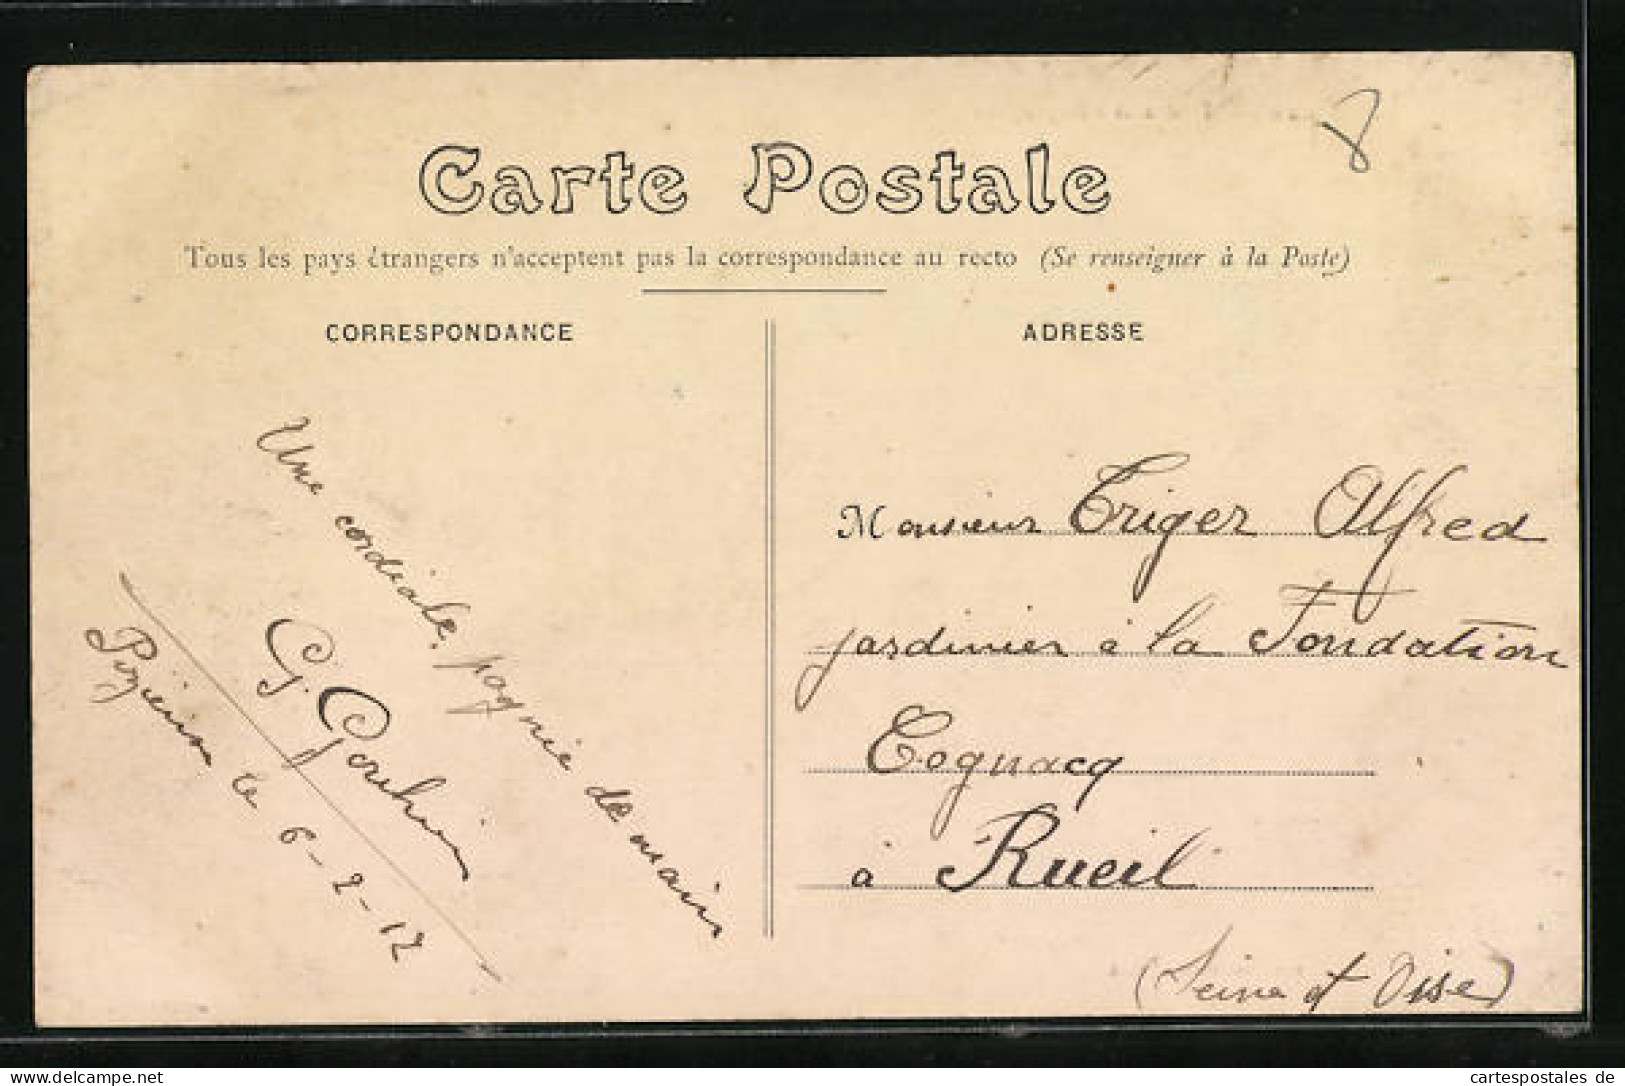 8
Carte Postale
Tous les pays étrangers n'acceptent pas la correspondance au recto (Se renseigner à la Poste)
CORRESPONDANCE
Une cordiale poignée de main
G.
le 6-2-12
ADRESSE
Monsieur Triger Alfred
jardinier à la Fondation
Cognacq
à Rueil
(Seine et Oise)
delcampe.net
cartespostales de